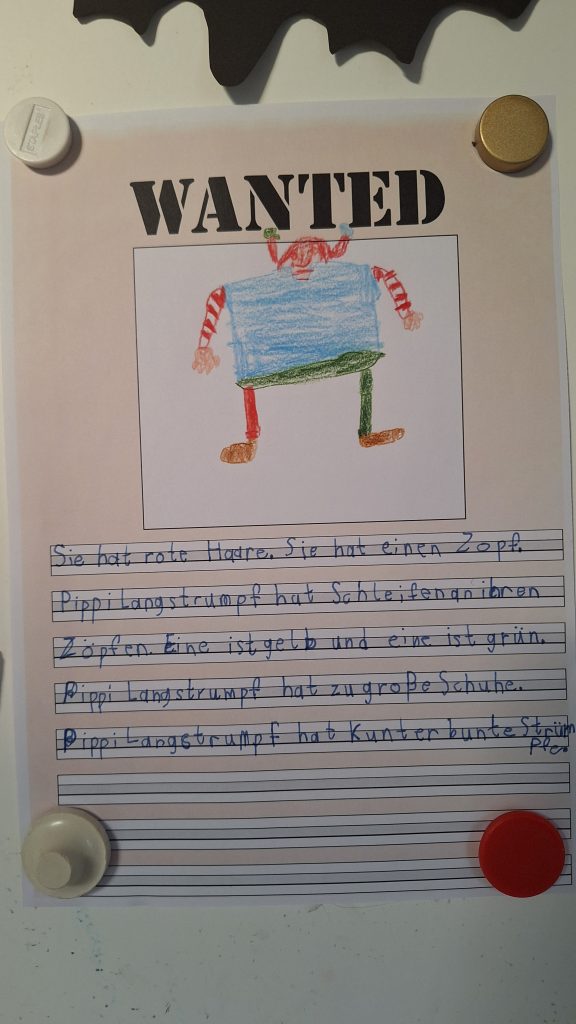 STAPLES
WANTED
Sie hat rote Haare. Sie hat einen Zopf.
Pippi Langstrumpf hat Schleifen an ihren
Zöpfen. Eine ist gelb und eine ist grün.
Pippi Langstrumpf hat zu große Schuhe.
Pippi Langstrumpf hat Kunterbunte Strüm
pfe.